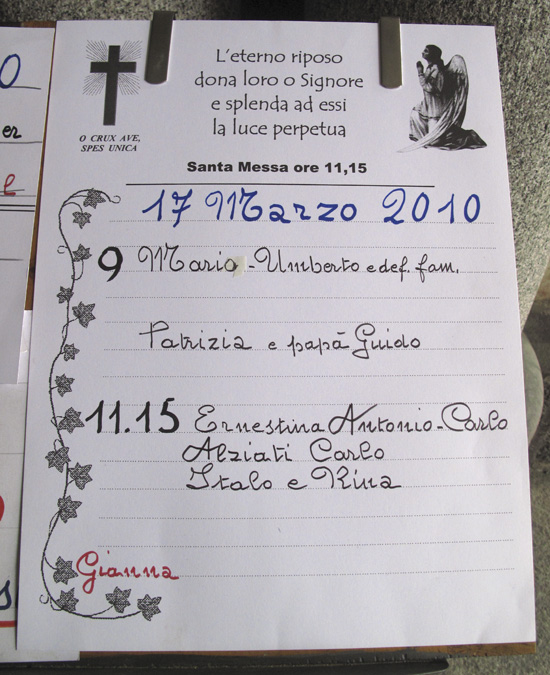 L'eterno riposo
dona loro o Signore
e splenda ad essi
la luce perpetua
O CRUX AVE,
SPES UNICA
Santa Messa ore 11,15
17 Marzo 2010
9 Mario - Umberto e def. fam.
Patrizia e papà Guido
11.15 Ernestina Antonio - Carlo
Alziati Carlo
Italo e Rina
Gianna
er